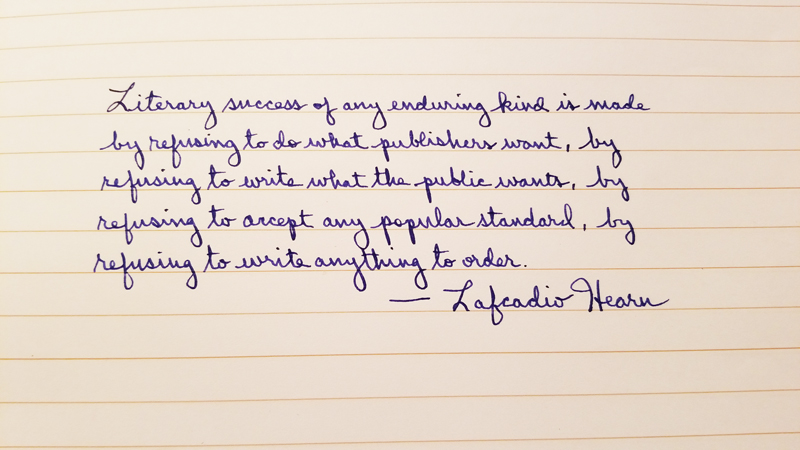 Literary success of any enduring kind is made
by refusing to do what publishers want, by
refusing to write what the public wants, by
refusing to accept any popular standard, by
refusing to write anything to order.
— Lafcadio Hearn